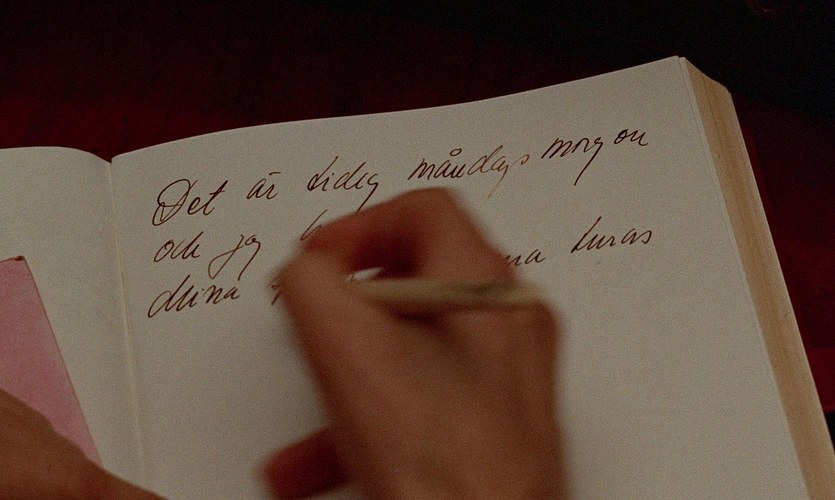 Det är tidig måndags morgon
och jag turas
Mina